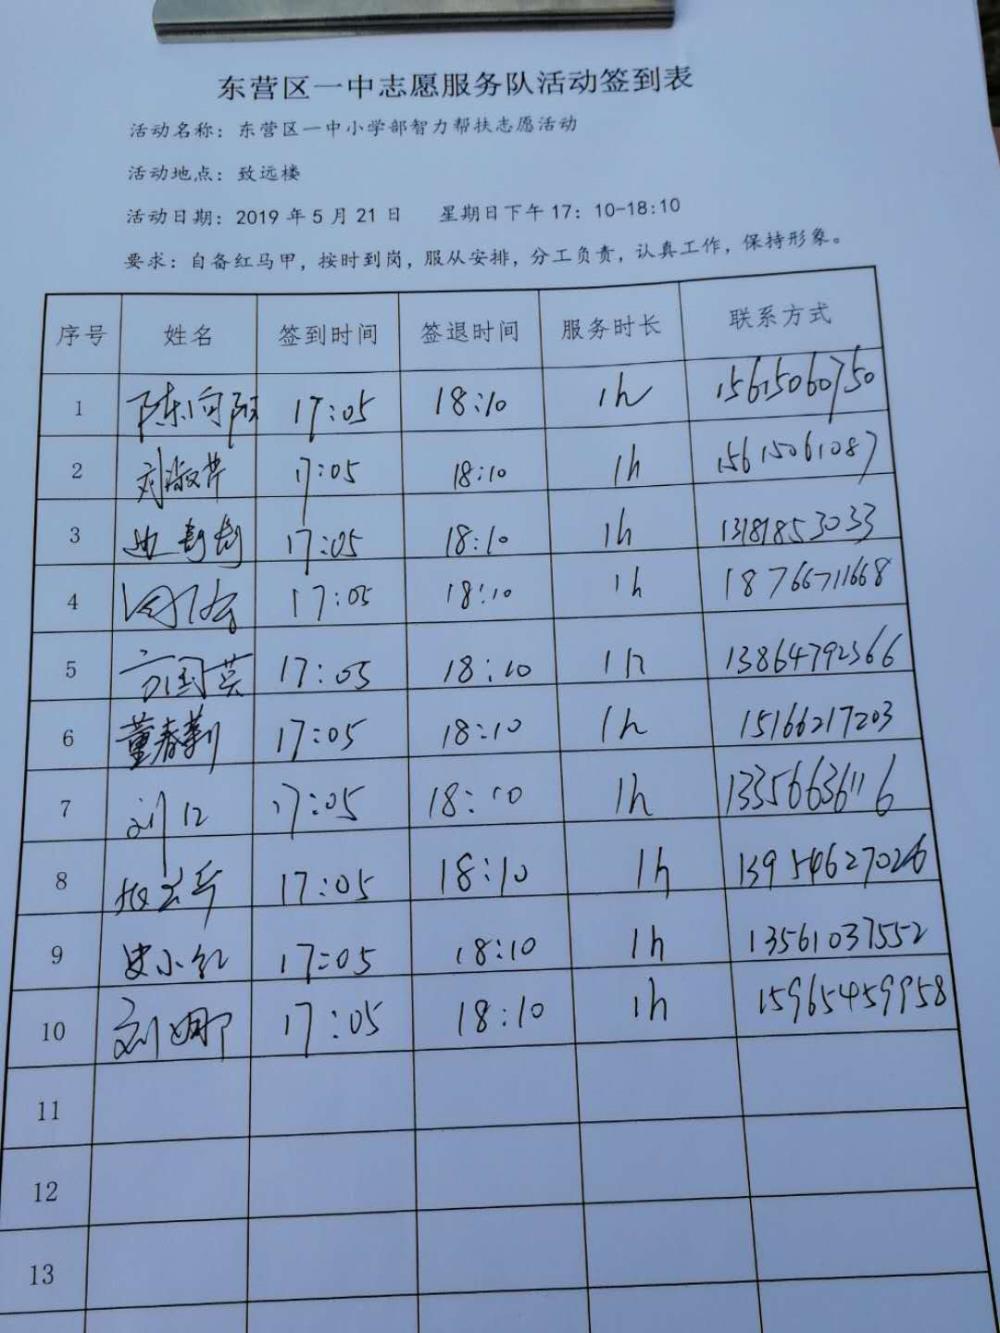 东营区一中志愿服务队活动签到表
活动名称：东营区一中小学部智力帮扶志愿活动
活动地点：致远楼
活动日期：2019 年 5 月 21 日 星期日下午 17：10-18:10
要求：自备红马甲，按时到岗，服从安排，分工负责，认真工作，保持形象。
序号 姓名 签到时间 签退时间 服务时长 联系方式
1 陈向阳 17:05 18:10 1h 15615060750
2 刘淑芹 17:05 18:10 1h 15615061087
3 17:05 18:10 1h 13181853033
4 17:05 18:10 1h 18766711668
5 方国英 17:05 18:10 1h 13864792366
6 董春莉 17:05 18:10 1h 15166217203
7 17:05 18:10 1h 13356636116
8 17:05 18:10 1h 13954627026
9 史小红 17:05 18:10 1h 13561037552
10 刘娜 17:05 18:10 1h 15965459958
11
12
13